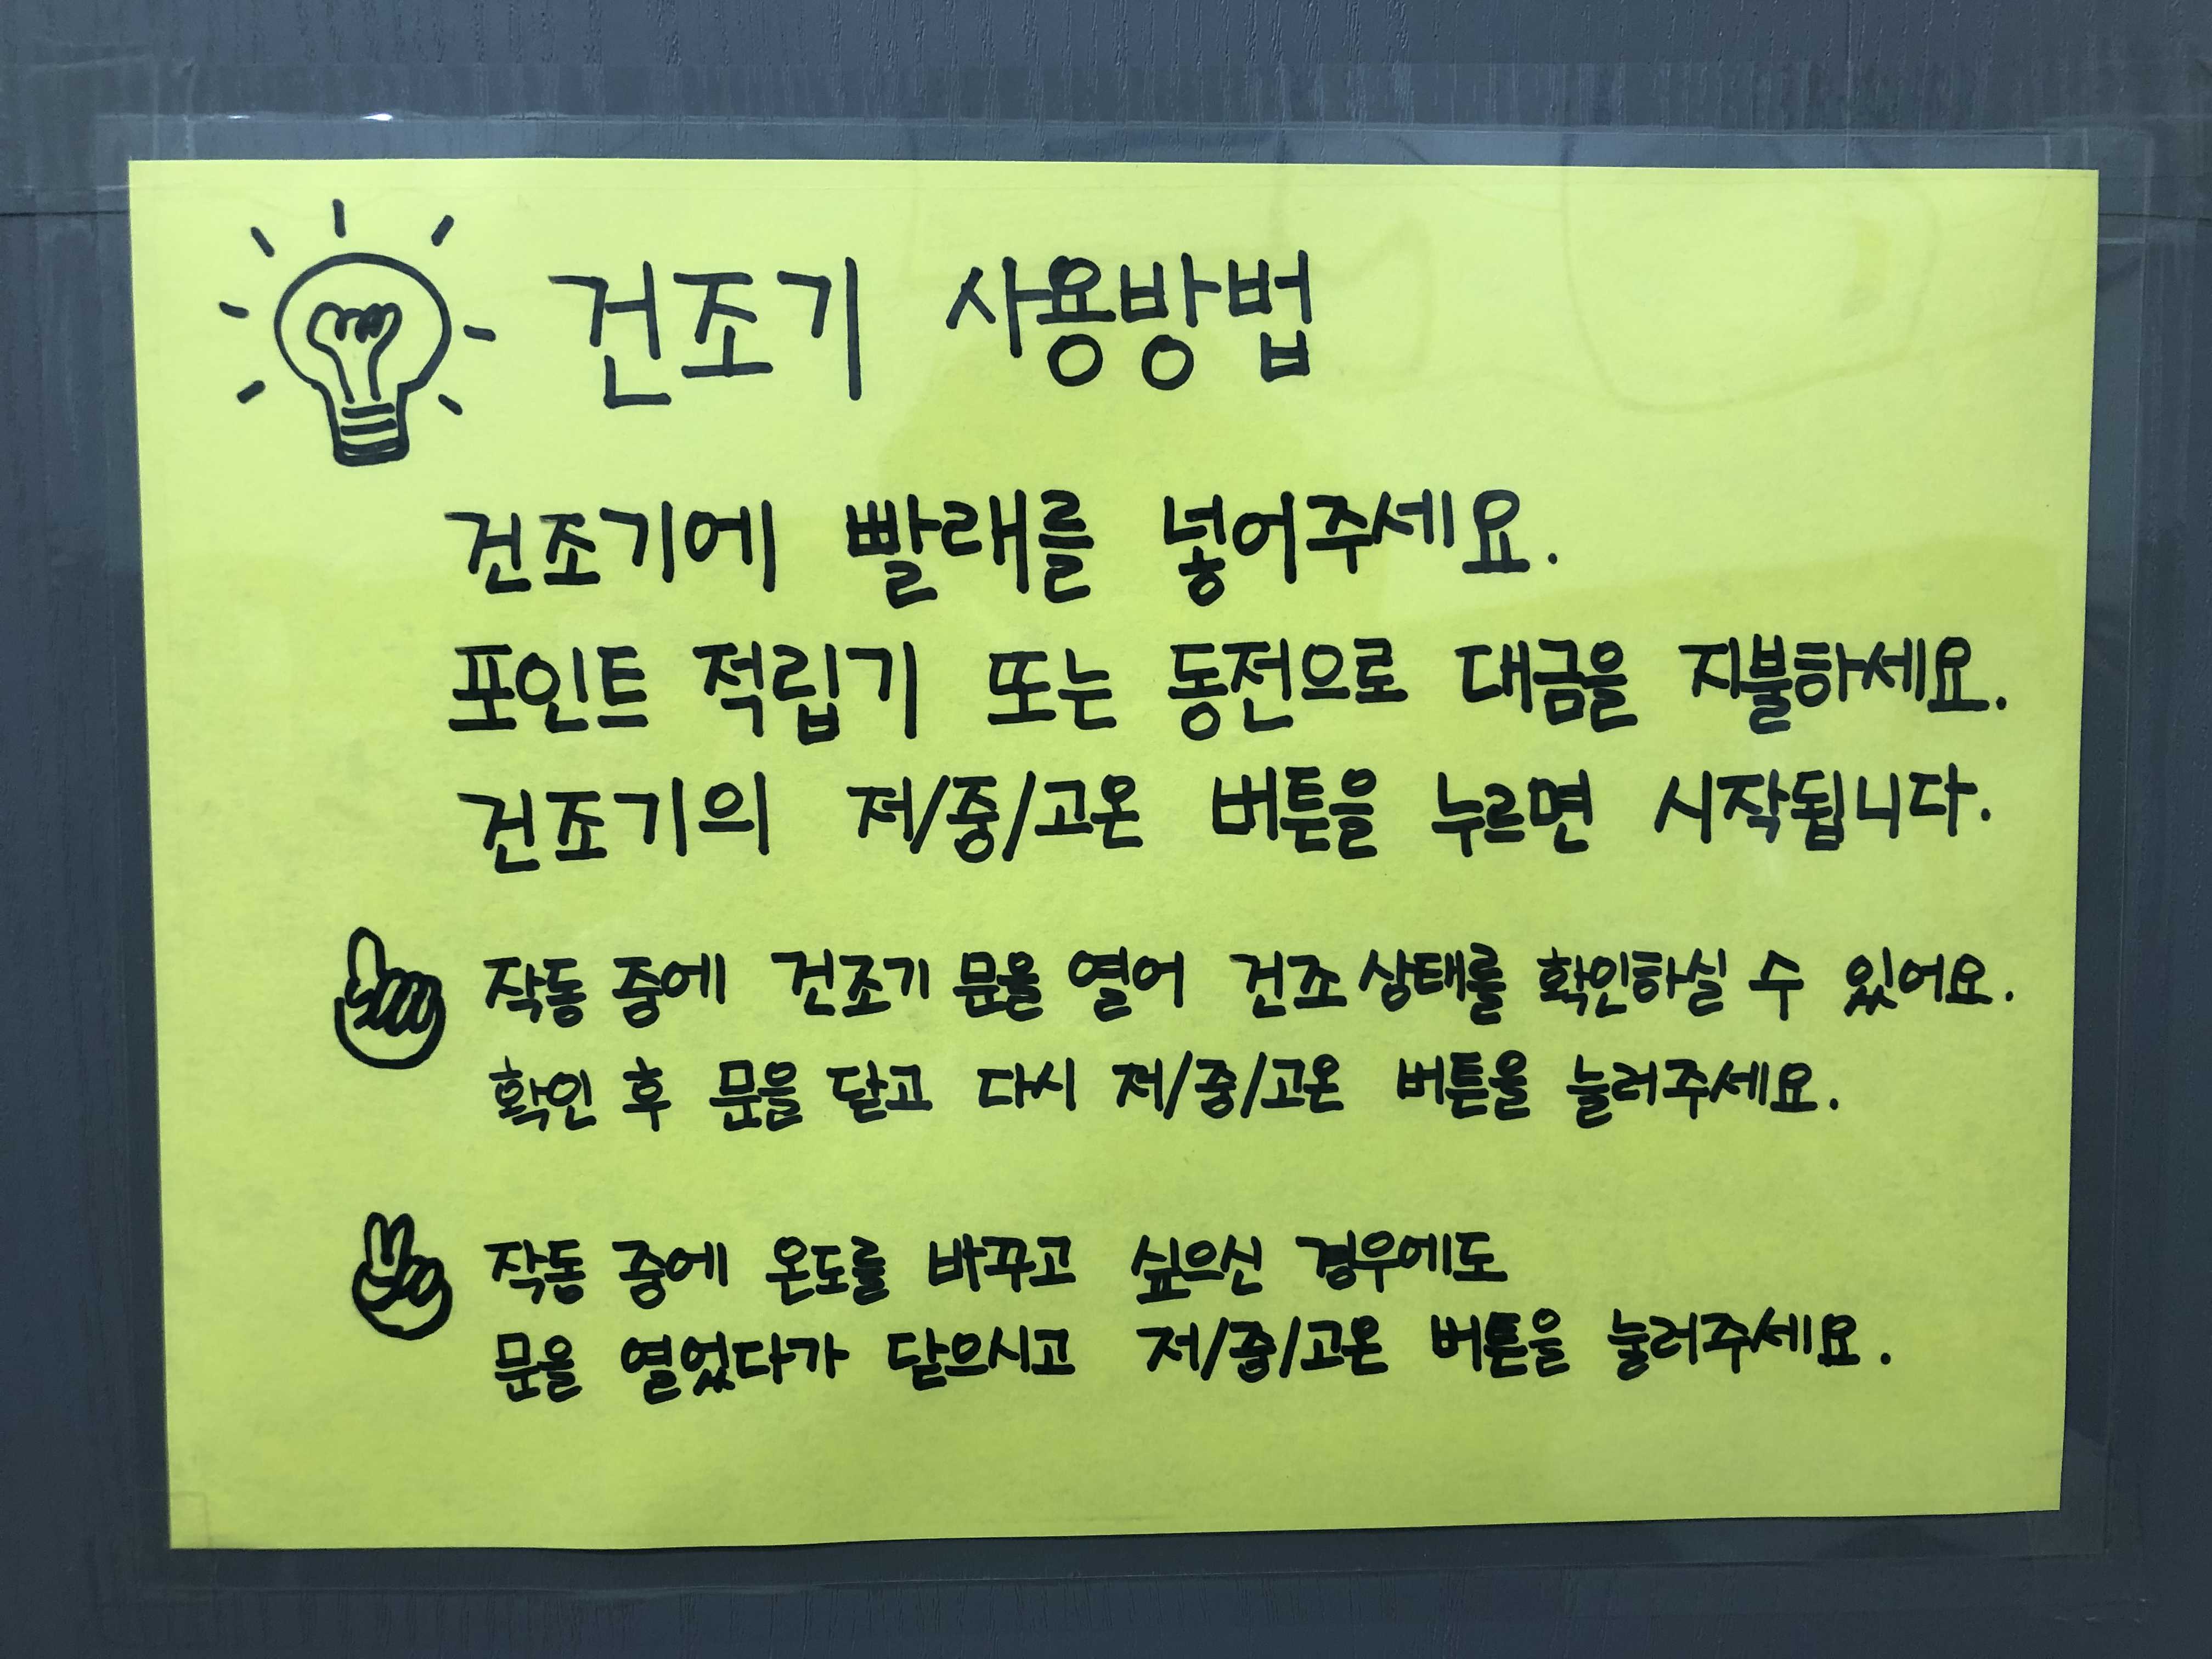 건조기 사용방법
건조기에 빨래를 넣어주세요.
포인트 적립기 또는 동전으로 대금을 지불하세요.
건조기의 저/중/고온 버튼을 누르면 시작됩니다.
작동 중에 건조기 문을 열어 건조 상태를 확인하실 수 있어요.
확인 후 문을 닫고 다시 저/중/고온 버튼을 눌러주세요.
작동 중에 온도를 바꾸고 싶으신 경우에도
문을 열었다가 닫으시고 저/중/고온 버튼을 눌러주세요.